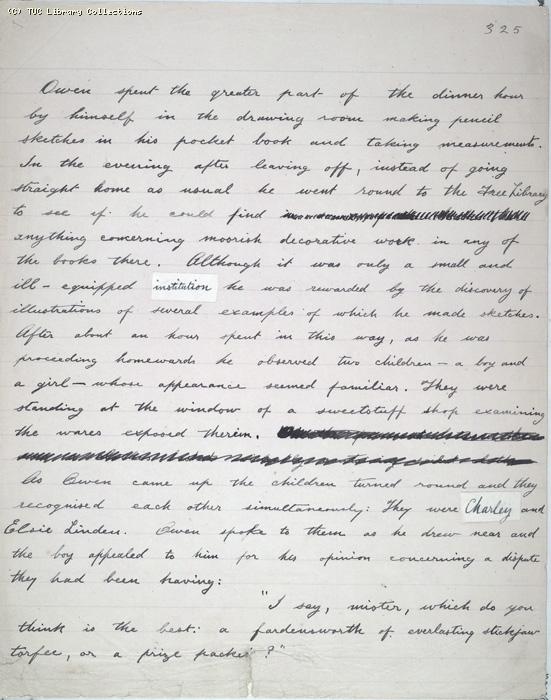 (C) TUC Library Collections
325
Owen spent the greater part of the dinner hour
by himself in the drawing room making pencil
sketches in his pocket book and taking measurements.
In the evening after leaving off, instead of going
straight home as usual he went round to the Free Library
to see if he could find
anything concerning moorish decorative work in any of
the books there. Although it was only a small and
ill-equipped institution he was rewarded by the discovery of
illustrations of several examples of which he made sketches.
After about an hour spent in this way, as he was
proceeding homewards he observed two children – a boy and
a girl – whose appearance seemed familiar. They were
standing at the window of a sweetstuff shop examining
the wares exposed therein.
As Owen came up the children turned round and they
recognised each other simultaneously: They were Charley and
Elsie Linden. Owen spoke to them as he drew near and
the boy appealed to him for his opinion concerning a dispute
they had been having:
"I say, mister, which do you
think is the best: a fardensworth of everlasting stickjaw
torfee, or a prize packet?"